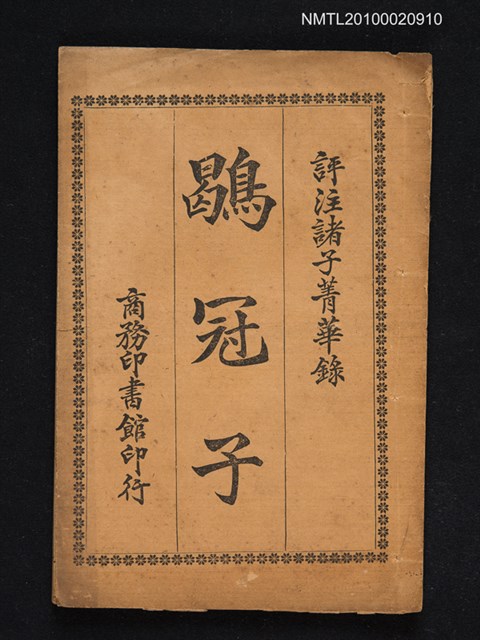 NMTL20100020910
評注諸子菁華錄
鶡冠子
商務印書館印行